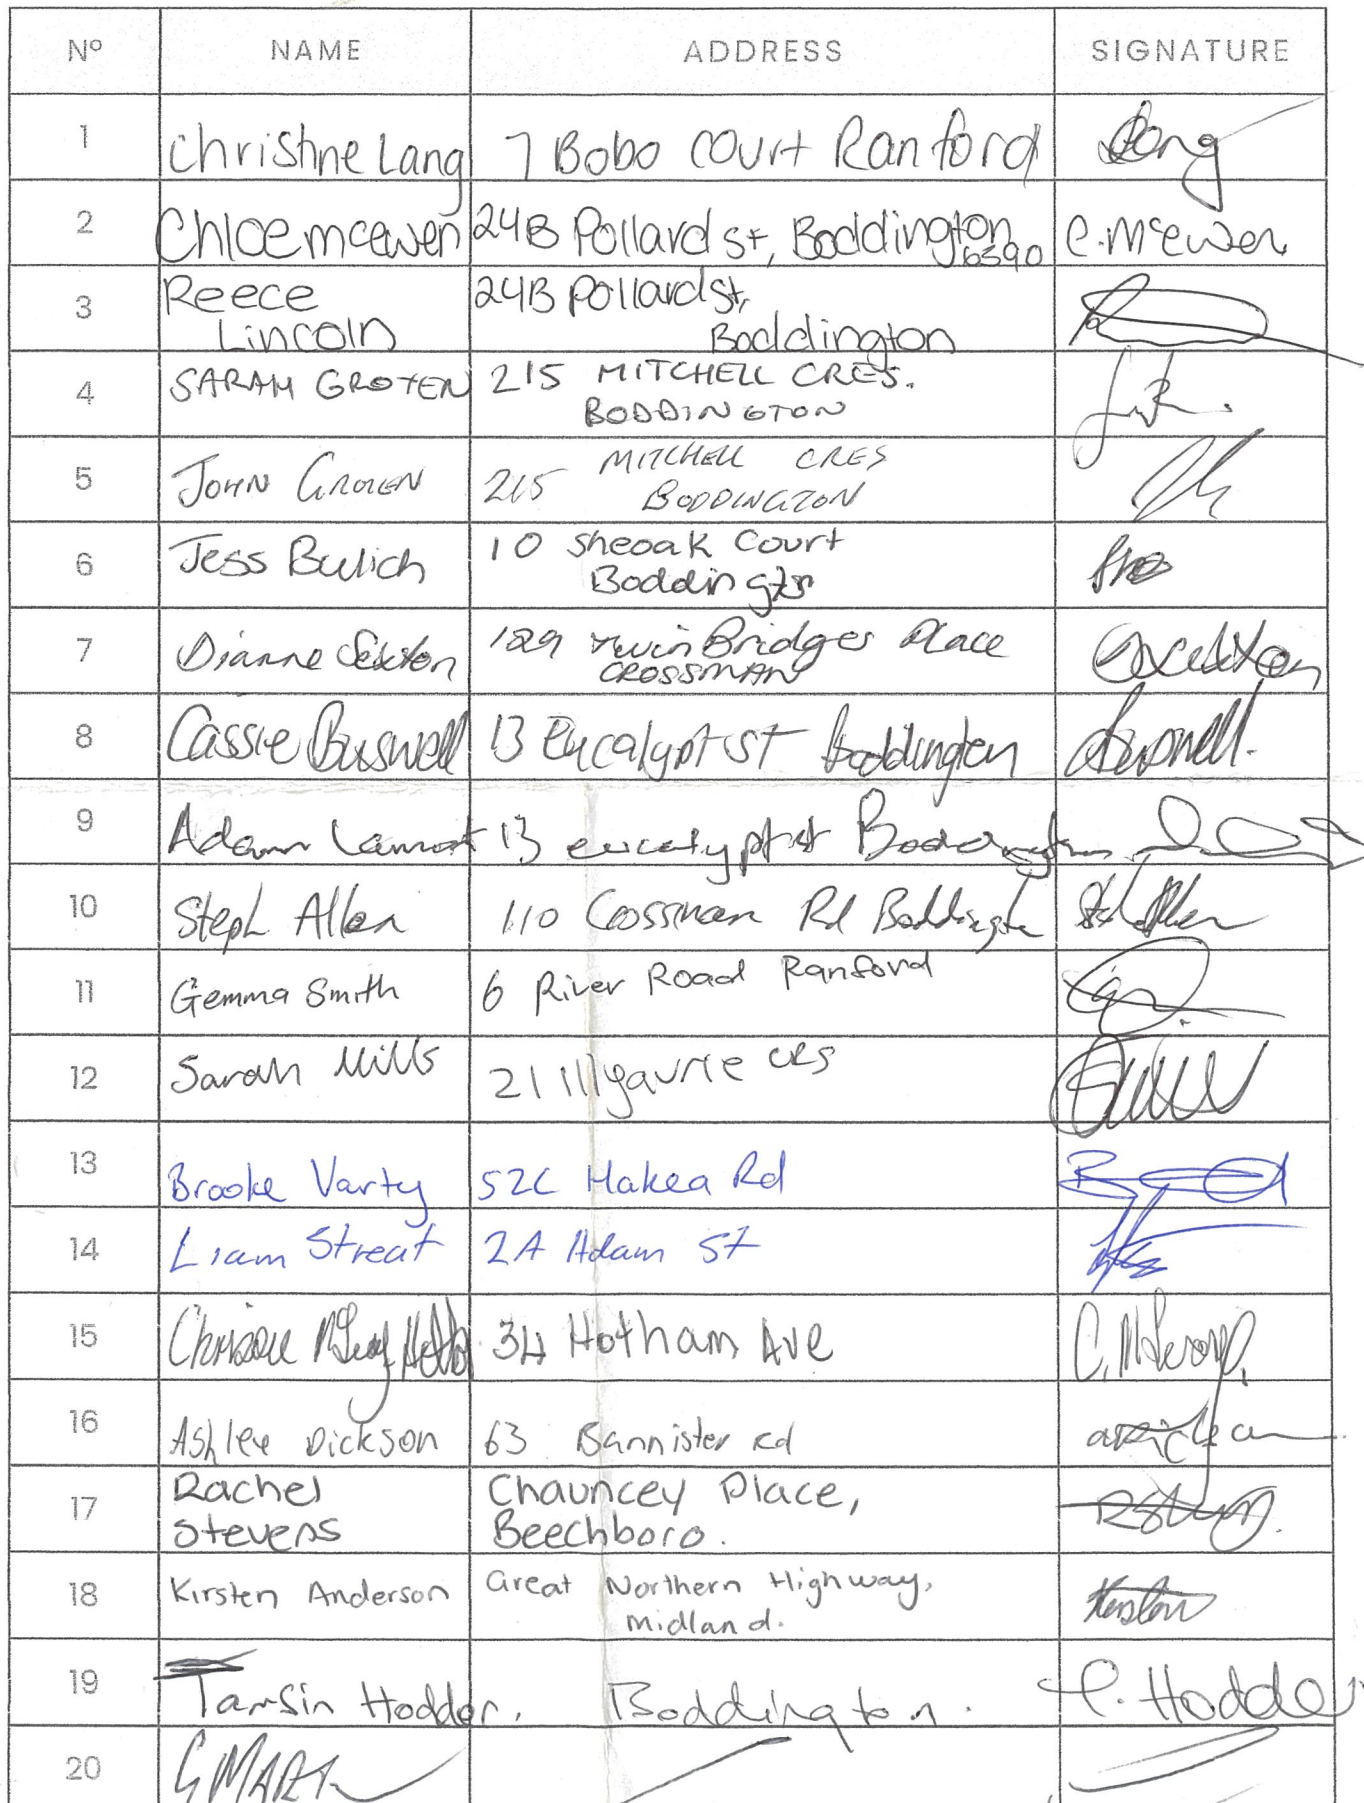 Nº NAME ADDRESS SIGNATURE
1 Christine Lang 7 Bobo Court Ranford
2 Chloe mcewen 24B Pollard St, Boddington 6390 C. McEwen
3 Reece Lincoln 24B Pollard St, Boddington
4 SARAH GROTEN 215 MITCHELL CRES. BODDINGTON
5 JOHN GROTEN 215 MITCHELL CRES BODDINGTON
6 Jess Bulich 10 Sheoak Court Boddington
7 Dianne Sexton 189 Twin Bridges Place CROSSMAN
8 Cassie Buswell 13 Eucalypt St Boddington
9 Adam Lamont 13 eucalypt st Boddington
10 Steph Allen 110 Crossman Rd Boddington
11 Gemma Smith 6 River Road Ranford
12 Sarah Mills 21 Illyaurie CRS
13 Brooke Varty 52C Hakea Rd
14 Liam Streat 2A Adam St
15 34 Hotham Ave
16 Ashlee Dickson 63 Bannister rd
17 Rachel Stevens Chauncey Place, Beechboro.
18 Kirsten Anderson Great Northern Highway, Midland.
19 Tamsin Hodder. Boddington. T. Hodder
20